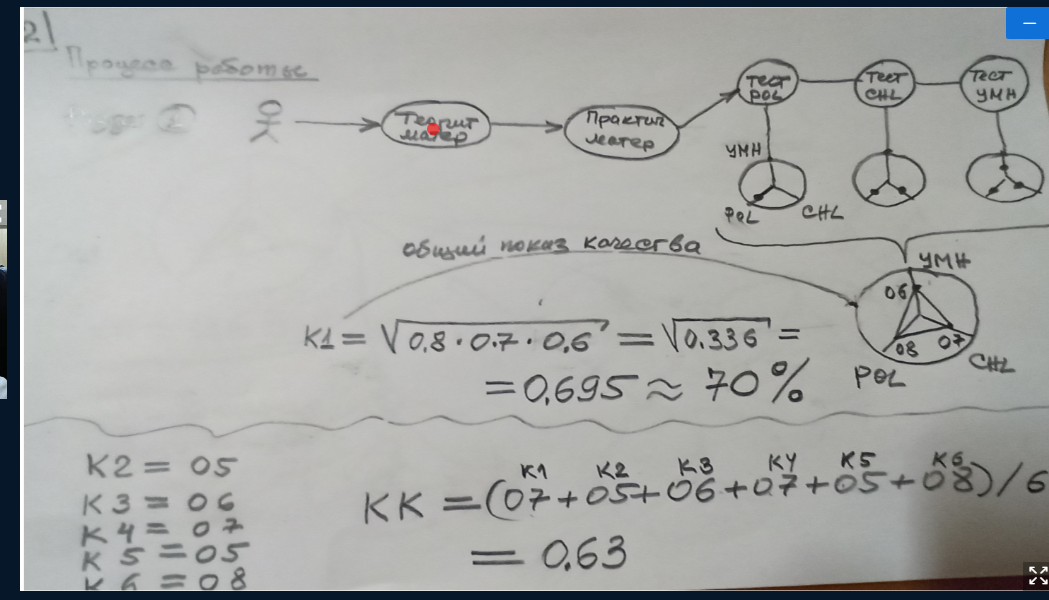 2|
Процесс работы
Теорит
матер
Практич
матер
Тест
POL
Тест
CHL
Тест
УМН
УМН
POL CHL
общий показ качества
УМН
06
08 07
POL CHL
K1 = √0.8 · 0.7 · 0.6 = √0.336 =
= 0.695 ≈ 70%
K2 = 05
K3 = 06
K4 = 07
K5 = 05
K6 = 08
K1 K2 K3 K4 K5 K6
KK = (07 + 05 + 06 + 0.7 + 05 + 08) / 6
= 0.63